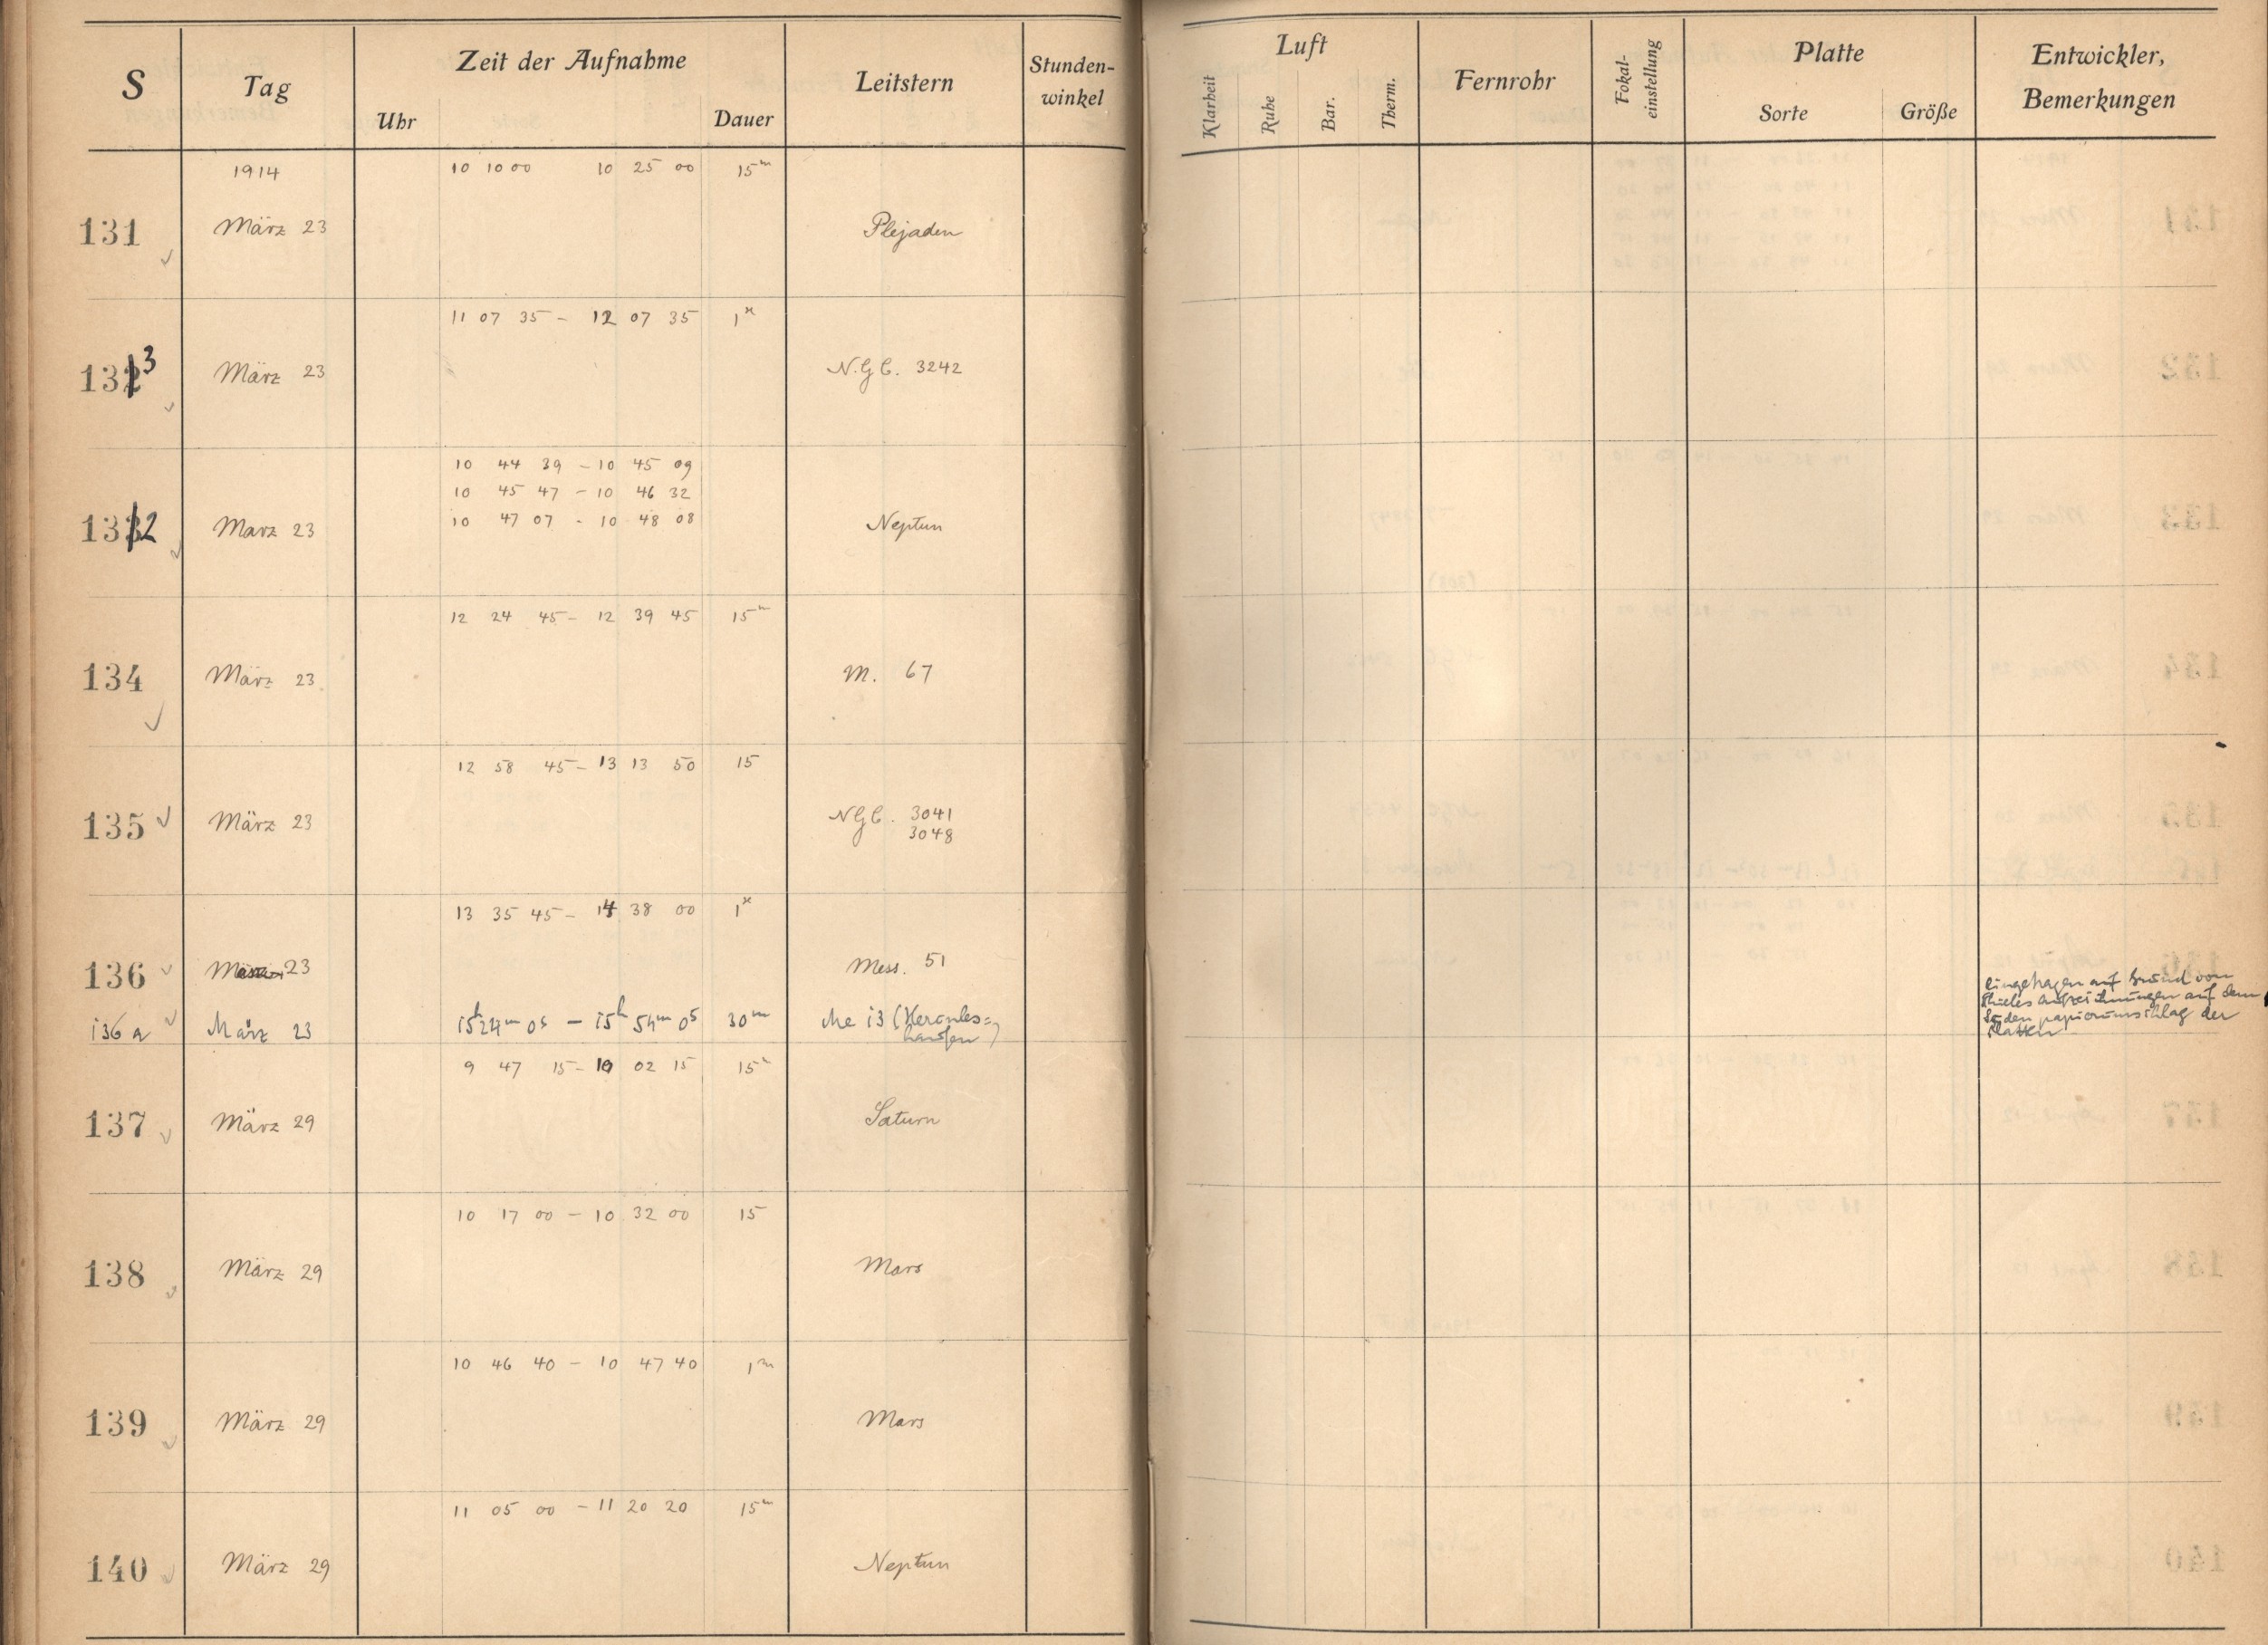 S Tag Zeit der Aufnahme Leitstern Stunden-winkel Luft Fernrohr Fokal-einstellung Platte Entwickler, Bemerkungen
Uhr Dauer Klarheit Ruhe Bar. Therm. Sorte Größe
1914 10 10 00 10 25 00 15m
131 März 23 Plejaden
11 07 35 – 12 07 35 1h
133 März 23 N.G.C. 3242
10 44 39 – 10 45 09
10 45 47 – 10 46 32
10 47 07 - 10 48 08
132 März 23 Neptun
12 24 45 – 12 39 45 15m
134 März 23 M. 67
12 58 45 – 13 13 50 15
135 März 23 NGC. 3041
3048
13 35 45 – 14 38 00 1h
136 März 23 Mess. 51
136 a März 23 15h 24m 05 – 15h 54m 05 30m Me 13 (Hercules=
haufen)
eingetragen auf Grund von
Thieles Aufzeichnungen auf dem
Seidenpapierumschlag der
Platten
9 47 15 – 10 02 15 15m
137 März 29 Saturn
10 17 00 – 10 32 00 15
138 März 29 Mars
10 46 40 – 10 47 40 1m
139 März 29 Mars
11 05 00 – 11 20 20 15m
140 März 29 Neptun